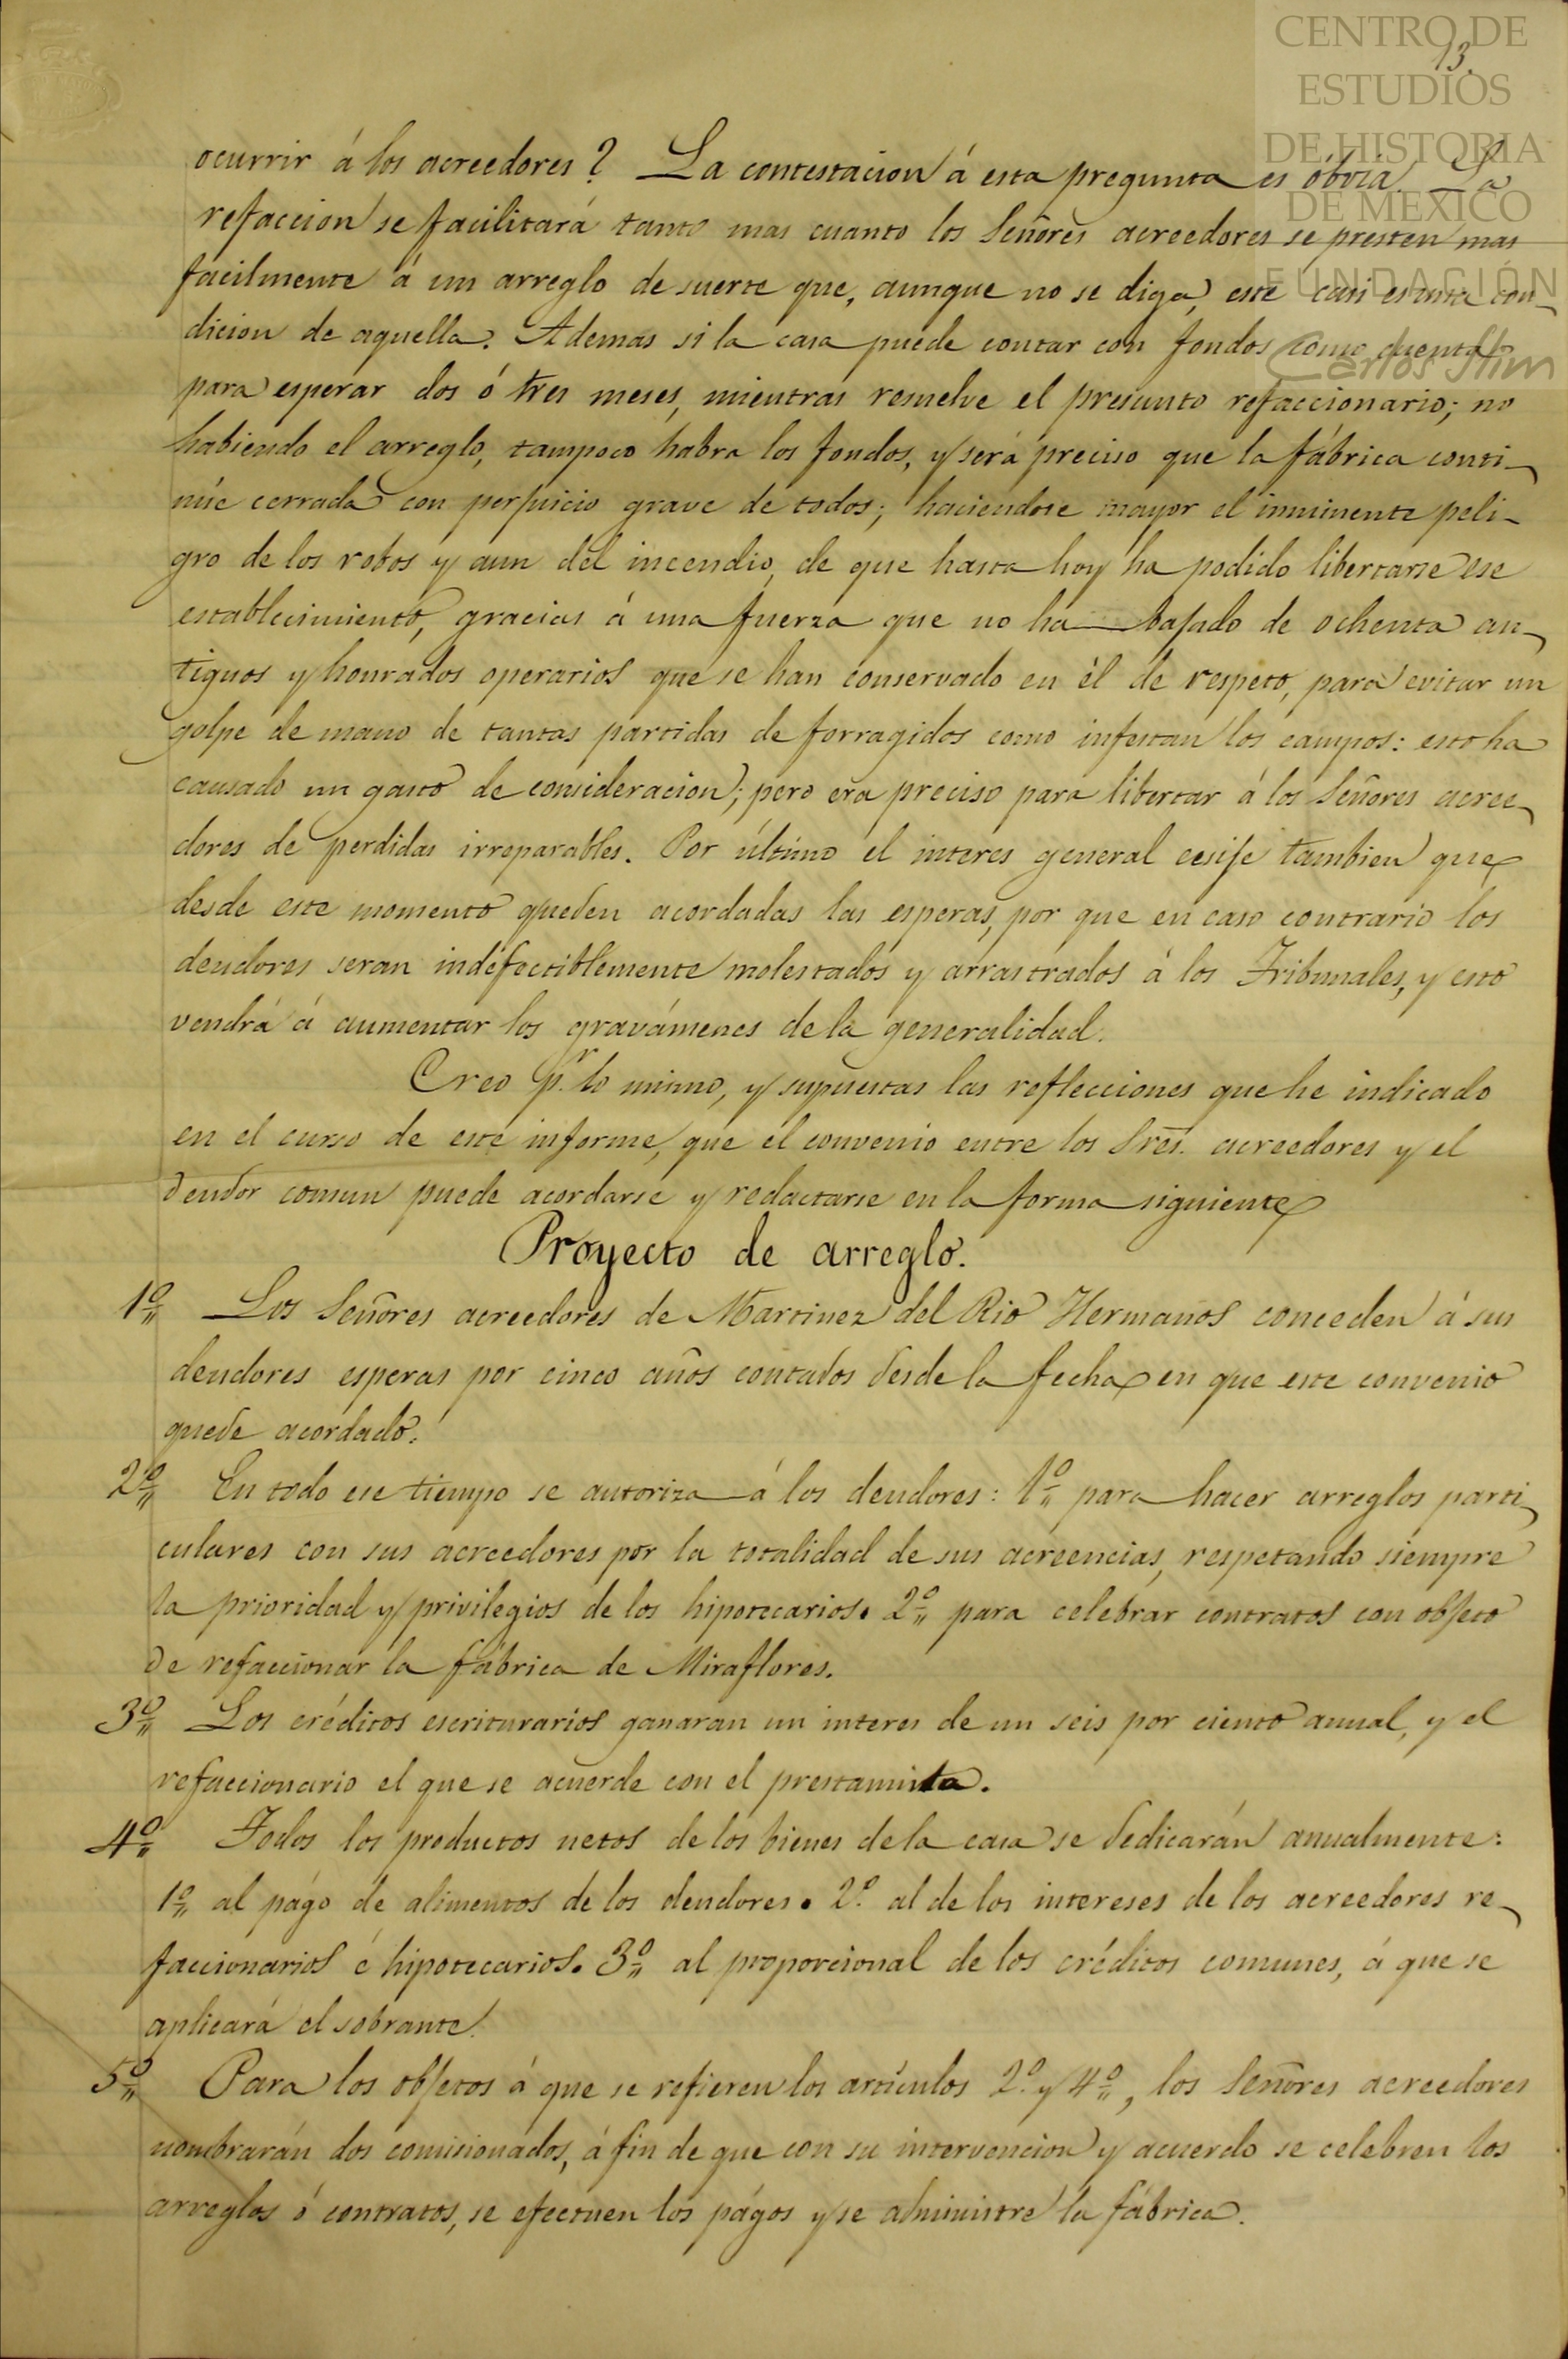 CENTRO DE
ESTUDIOS
DE HISTORIA
DE MEXICO
FUNDACIÓN
Carlos Slim
13.
ocurrir á los acreedores? La contestacion á esta pregunta es óbvia. La
refaccion se facilitará tanto mas cuanto los Señores acreedores se presten mas
facilmente á un arreglo de suerte que, aunque no se diga, este casi es una con-
dicion de aquella. Ademas si la casa puede contar con fondos como cuenta
para esperar dos ó tres meses, mientras resuelve el presunto refaccionario; no
habiendo el arreglo, tampoco habra los fondos, y será preciso que la fábrica conti-
núe cerrada con perjuicio grave de todos; haciendose mayor el inminente peli-
gro de los robos y aun del incendio, de que hasta hoy ha podido libertarse ese
establecimiento, gracias á una fuerza que no ha bajado de ochenta an-
tiguos y honrados operarios que se han conservado en él de respeto, para evitar un
golpe de mano de tantas partidas de forragidos como infestan los campos: esto ha
causado un gasto de consideracion; pero era preciso para libertar á los Señores acree-
dores de perdidas irreparables. Por último el interes general ecsije tambien que
desde este momento queden acordadas las esperas, por que en caso contrario los
deudores seran indefectiblemente molestados y arrastrados á los Tribunales, y esto
vendrá á aumentar los gravámenes de la generalidad.
Creo pr. lo mismo, y supuestas las reflecciones que he indicado
en el curso de este informe, que el convenio entre los Sres. acreedores y el
deudor comun puede acordarse y redactarse en la forma siguiente
Proyecto de arreglo.
1º Los Señores acreedores de Martinez del Rio Hermanos conceden á sus
deudores esperas por cinco años contados desde la fecha en que este convenio
quede acordado.
2º En todo ese tiempo se autoriza á los deudores: 1º para hacer arreglos parti-
culares con sus acreedores por la totalidad de sus acreencias, respetando siempre
la prioridad y privilegios de los hipotecarios. 2º para celebrar contratos con objeto
de refaccionar la fábrica de Miraflores.
3º Los créditos escriturarios ganaran un interes de un seis por ciento anual, y el
refaccionario el que se acuerde con el prestamista.
4º Todos los productos netos de los bienes de la casa se dedicarán anualmente:
1º al págo de alimentos de los deudores. 2º al de los intereses de los acreedores re-
faccionarios é hipotecarios. 3º al proporcional de los créditos comunes, á que se
aplicará el sobrante.
5º Para los objetos á que se refieren los artículos 2º y 4º, los Señores acreedores
nombrarán dos comisionados, á fin de que con su intervencion y acuerdo se celebren los
arreglos ó contratos, se efectuen los págos y se administre la fábrica.